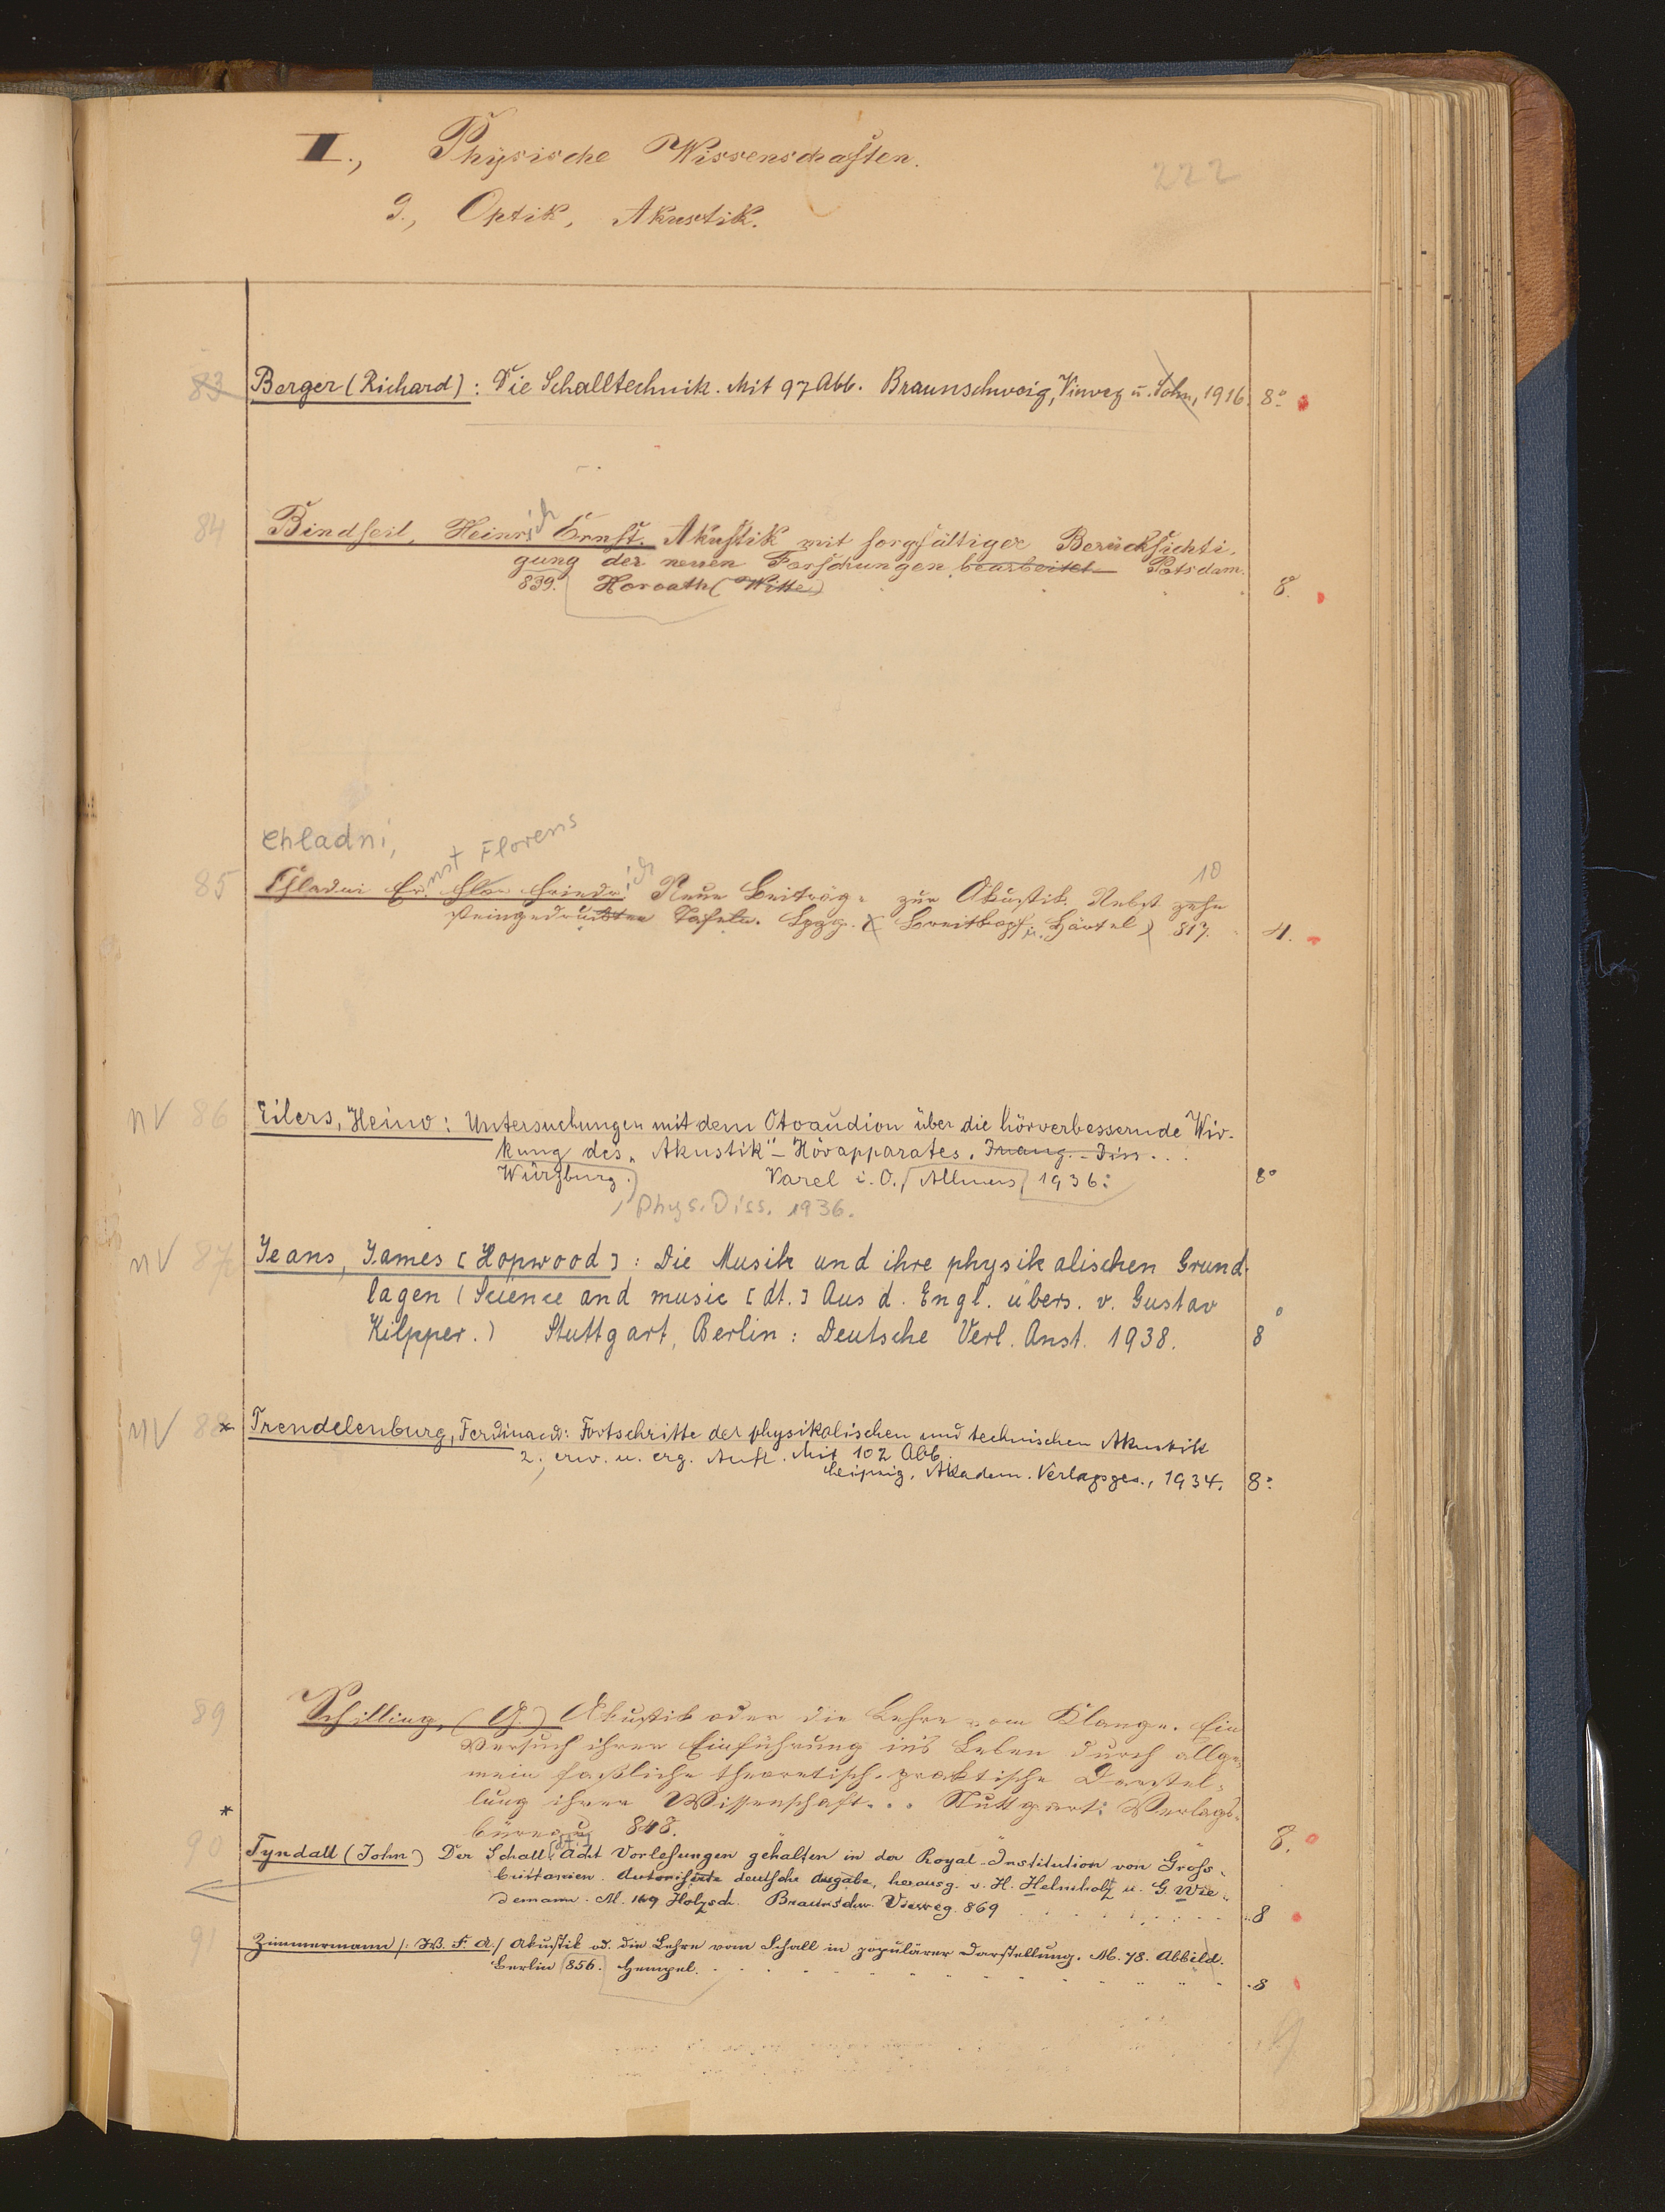 II., Physische Wissenschaften.
222
g., Optik, Akustik.
83 Berger (Richard): Die Schalltechnik. Mit 97 Abb. Braunschweig, Vieweg u. Sohn, 1916. 8°
84 Bindseil, Heinrich Ernst. Akustik mit sorgfältiger Berücksichti-
gung der neuen Forschungen bearbeitet Potsdam.
839. Horvath (Witte) 8.
Chladni, Ernst Florens
85 Chladni Er. Flor. Friedrich Neue Beiträge zur Akustik. Nebst zehn 10
steingedruckten Tafeln. Lpzg. (Breitkopf u. Härtel) 817. 4.
NV 86 Eilers, Heino: Untersuchungen mit dem Otoaudion über die hörverbessernde Wir-
kung des „Akustik"-Hörapparates. Inaug.-Diss...
Würzburg. Varel i. O., Allmers, 1936. 8°
Phys. Diss. 1936.
NV 87 Jeans, James [Hopwood]: Die Musik und ihre physikalischen Grund-
lagen (Science and music [dt.] Aus d. Engl. übers. v. Gustav
Kilpper.) Stuttgart, Berlin: Deutsche Verl. Anst. 1938. 8°
NV 88 * Trendelenburg, Ferdinand: Fortschritte der physikalischen und technischen Akustik
2., erw. u. erg. Aufl. Mit 102 Abb.
Leipzig, Akadem. Verlagsges., 1934. 8°
89 Schilling, (G.) Akustik oder die Lehre vom Klange. Ein
Versuch ihrer Einführung in's Leben durch allge-
mein faßliche theoretisch-praktische Darstel-
lung ihrer Wissenschaft... Stuttgart: Verlags-
büreau 848. 8.
*
90 Tyndall (John) Der Schall [dt.] Acht Vorlesungen gehalten in der Royal-Institution von Gross-
brittanien. Autorisirte deutsche Ausgabe, herausg. v. H. Helmholtz u. G. Wie-
demann. M. 169 Holzsch. Braunschw. Vieweg. 869 8
91 Zimmermann /: W. F. A:/ Akustik od. die Lehre vom Schall in populärer Darstellung. M. 78. Abbild.
Berlin 856. Hempel. 8